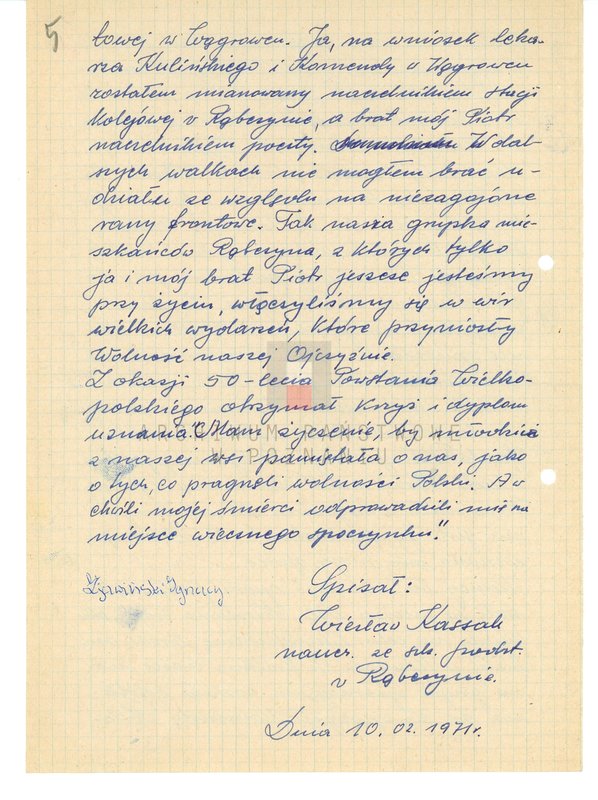 5
towej w Wągrowcu. Ja, na wniosek leka-
rza Kulińskiego i Komendy w Wągrowcu
zostałem mianowany naczelnikiem stacji
kolejowej w Rąbczynie, a brat mój Piotr
naczelnikiem poczty. W dal-
szych walkach nie mogłem brać u-
działu ze względu na niezagojone
rany frontowe. Tak nasza grupka mie-
szkańców Rąbczyna, z których tylko
ja i mój brat Piotr jeszcze jesteśmy
przy życiu, włączyliśmy się w wir
wielkich wydarzeń, które przyniosły
Wolność naszej Ojczyźnie.
Z okazji 50-lecia Powstania Wielko-
polskiego otrzymał Krzyż i dyplom
uznania. "Mam życzenie, by młodzież
z naszej wsi pamiętała o nas, jako
o tych, co pragnęli wolności Polski. A w
chwili mojej śmierci odprowadzili mię na
miejsce wiecznego spoczynku."
ARCHIWUM PAŃSTWOWE
W POZNANIU
Ignacy
Spisał:
Wiesław Kassak
naucz. ze szk. podst.
w Rąbczynie.
Dnia 10.02.1971r.